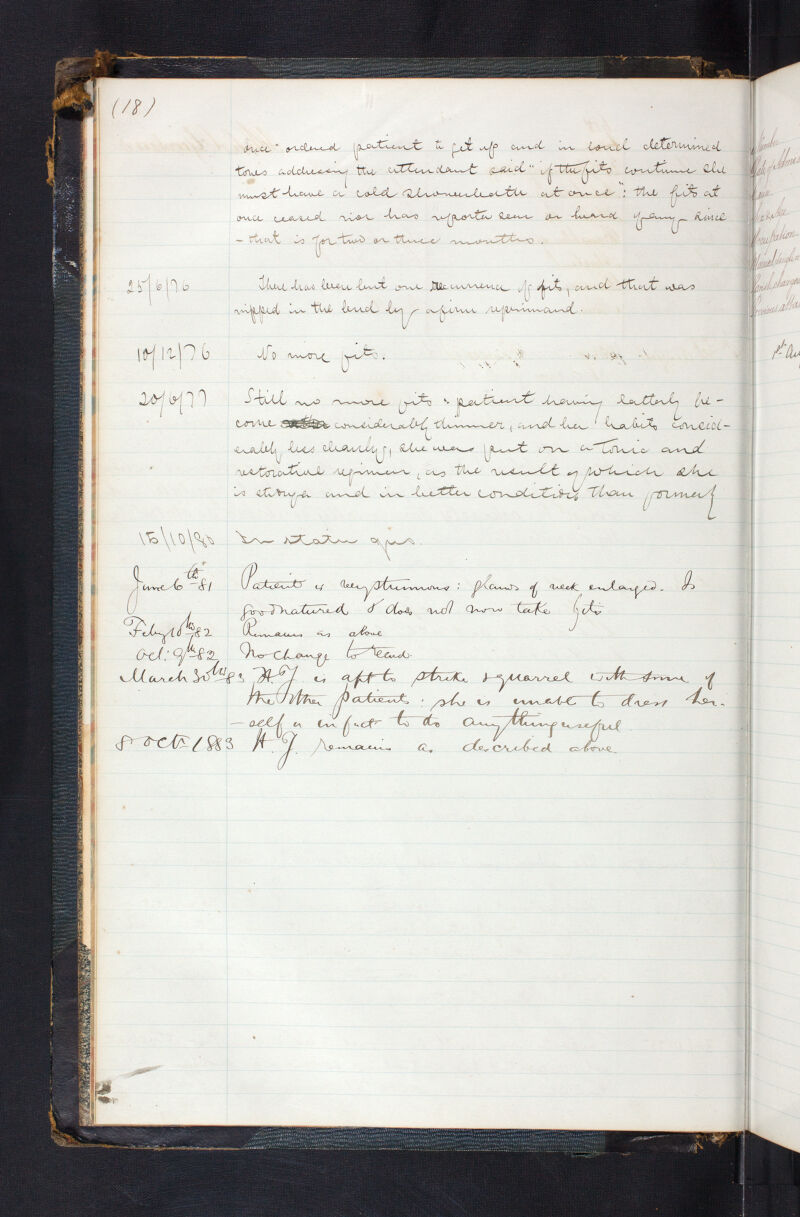 (18)
once ordered patient to get up and in loud determined
tones addressing the attendant said "if the fits continue she
must have a cold shower bath at once": the fits at
once ceased nor has reporter seen or heard of any since
- that is for two or three months.
25/6/76 There has been but one recurrence of fits, and that was
nipped in the bud by a firm reprimand.
10/12/76 No more fits.
20/6/77 Still no more fits: patient having latterly be-
come considerably thinner, and her habits consid-
erably less cleanly, she was put on a tonic and
restorative regimen, as the result of which she
is stronger and in better condition than formerly
15/10/80 In statu quo.
June 6th 81 Patient is very strumous: glands of neck enlarged. Is
goodnatured & does not now take fits
Feby 10th 82 Remains as above
Oct: 9th 82 No change to record
March 30th 83 H.J. is apt to strike & quarrel with some of
the other patients: she is unable to dress her-
-self or in fact to do anything useful.
8 Oct 1883 H. J. remains as described above.
Number
1st Au